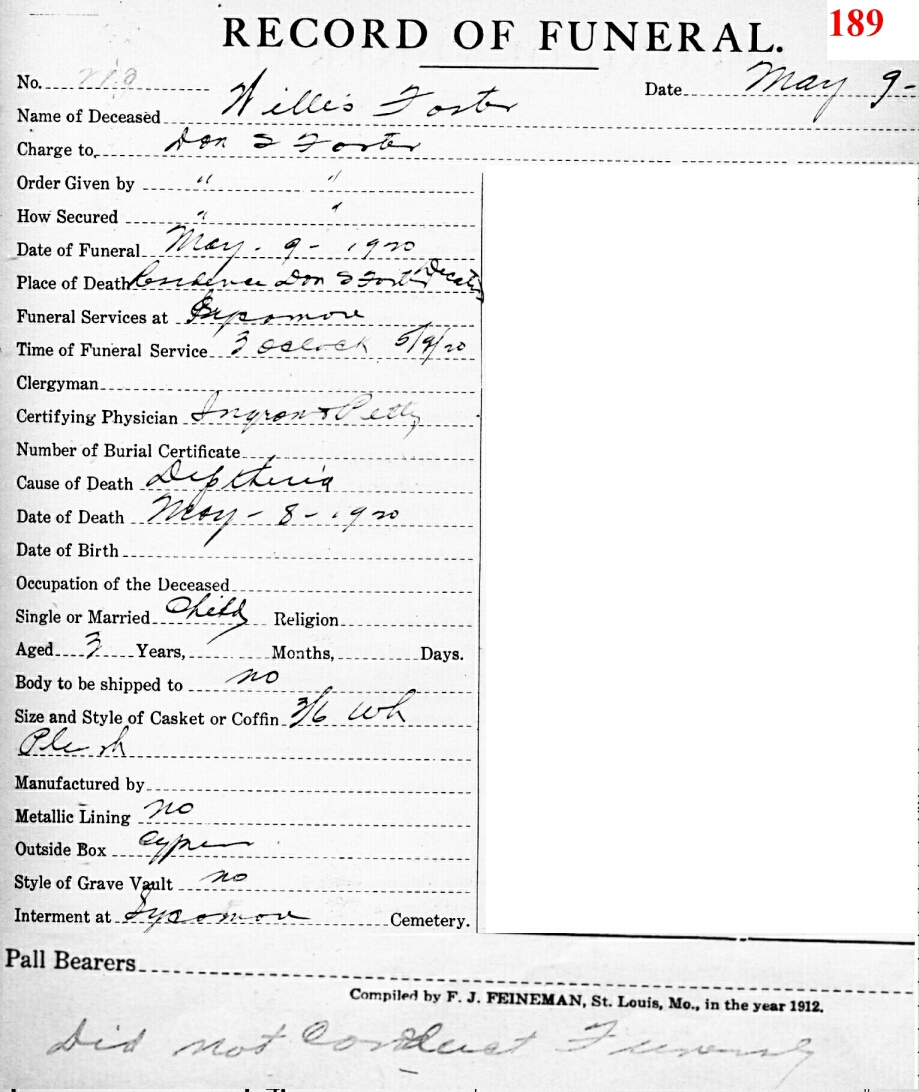 RECORD OF FUNERAL. 189
No. 219 Date May 9-
Name of Deceased Willis Foster
Charge to Don S Foster
Order Given by " "
How Secured " "
Date of Funeral May - 9 - 1920
Place of Death Residence Don S Foster Decatur
Funeral Services at Sycamore
Time of Funeral Service 3 oclock 5/9/20
Clergyman
Certifying Physician Ingram & Petty
Number of Burial Certificate
Cause of Death Diptheria
Date of Death May - 8 - 1920
Date of Birth
Occupation of the Deceased
Single or Married Child Religion
Aged 3 Years, Months, Days.
Body to be shipped to no
Size and Style of Casket or Coffin 3/6 Wh
Plush
Manufactured by
Metallic Lining no
Outside Box Cypress
Style of Grave Vault no
Interment at Sycamore Cemetery.
Pall Bearers
Compiled by F. J. FEINEMAN, St. Louis, Mo., in the year 1912.
Did not Conduct Funeral